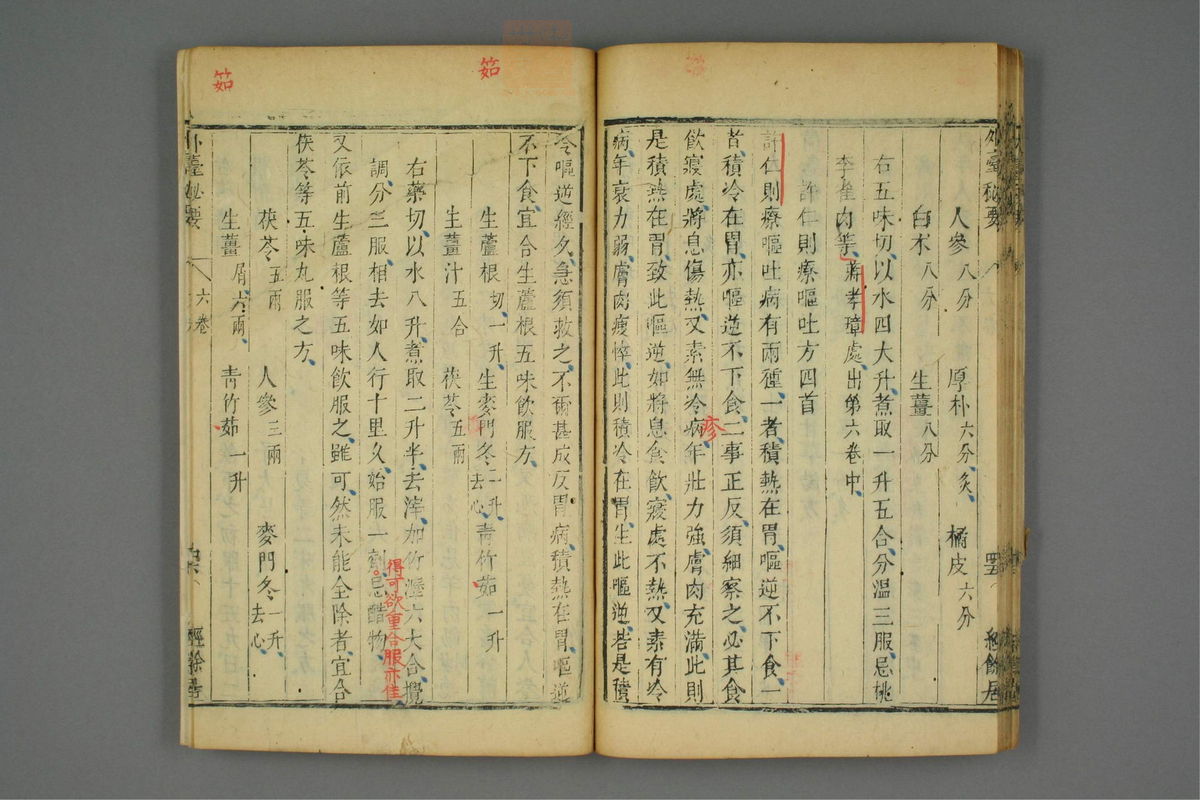 外臺秘要
六卷
四五
經餘居
人參八分 厚朴六分炙 橘皮六分
白朮八分 生薑八分
右五味切以水四大升煮取一升五合分溫三服忌桃
李雀肉等蔣孝璋處出第六卷中
許仁則療嘔吐方四首
許仁則療嘔吐病有兩種一者積熱在胃嘔逆不下食一
者積冷在胃亦嘔逆不下食二事正反須細察之必其食
飲寢處將息傷熱又素無冷病年壯力強膚肉充滿此則
疹
是積熱在胃致此嘔逆如將息食飲寢處不熱又素有冷
病年衰力弱膚肉瘦悴此則積冷在胃生此嘔逆若是積
茹
今嘔逆經久急須救之不爾甚成反胃病積熱在胃嘔逆
不下食宜合生蘆根五味飲服方
生蘆根切一升 生麥門冬二升去心 青竹茹一升
生薑汁五合 茯苓五兩
右藥切以水八升煮取二升半去滓加竹瀝六大合攪
調分三服相去如人行十里久始服一劑忌醋物
得可欲重合服亦佳
又依前生蘆根等五味飲服之雖可然未能全除者宜合
茯苓等五味丸服之方
茯苓五兩 人參三兩 麥門冬一升去心
生薑屑六兩 青竹茹一升
茹
外臺秘要
六卷
經餘居